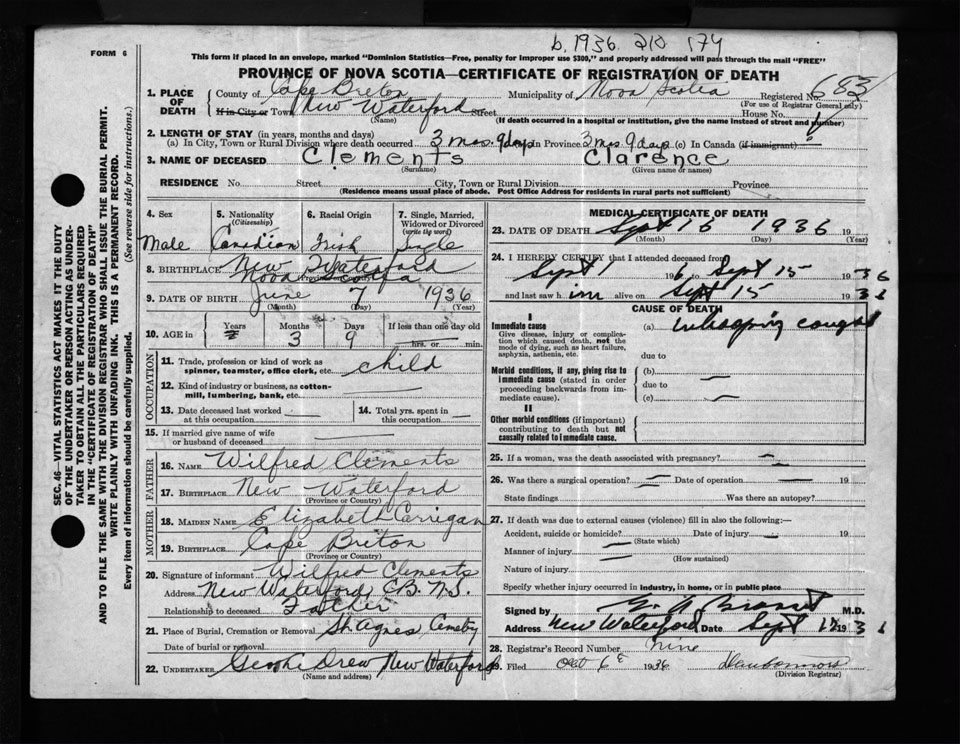 b. 1936. 210 174
FORM 6
This form if placed in an envelope, marked "Dominion Statistics—Free, penalty for improper use $300," and properly addressed will pass through the mail "FREE"
PROVINCE OF NOVA SCOTIA—CERTIFICATE OF REGISTRATION OF DEATH
1. PLACE OF DEATH
County of Cape Breton Municipality of Nova Scotia Registered No. 683
(For use of Registrar General only)
If in City or Town New Waterford Street House No.
(Name) (If death occurred in a hospital or institution, give the name instead of street and number)
2. LENGTH OF STAY (in years, months and days)
(a) In City, Town or Rural Division where death occurred 3 mos. 9 days In Province 3 mos. 9 days (c) In Canada (if immigrant)
3. NAME OF DECEASED Clements Clarence
(Surname) (Given name or names)
RESIDENCE No. Street City, Town or Rural Division Province
(Residence means usual place of abode. Post Office Address for residents in rural parts not sufficient)
4. Sex 5. Nationality (Citizenship) 6. Racial Origin 7. Single, Married, Widowed or Divorced (write the word)
Male Canadian Irish Single
8. BIRTHPLACE New Waterford
Nova Scotia
9. DATE OF BIRTH June 7 1936
(Month) (Day) (Year)
10. AGE in Years Months Days If less than one day old
3 9 hrs. or min.
OCCUPATION
11. Trade, profession or kind of work as spinner, teamster, office clerk, etc. child
12. Kind of industry or business, as cotton-mill, lumbering, bank, etc.
13. Date deceased last worked at this occupation 14. Total yrs. spent in this occupation
15. If married give name of wife or husband of deceased
FATHER
16. NAME Wilfred Clements
17. BIRTHPLACE New Waterford
(Province or Country)
MOTHER
18. MAIDEN NAME Elizabeth Corrigan
19. BIRTHPLACE Cape Breton
(Province or Country)
20. Signature of informant Wilfred Clements
Address New Waterford, C.B. N.S.
Relationship to deceased Father
21. Place of Burial, Cremation or Removal St. Agnes Cemetry
Date of burial or removal
22. UNDERTAKER George Drew New Waterford
(Name and address)
MEDICAL CERTIFICATE OF DEATH
23. DATE OF DEATH Sept 15 1936 19
(Month) (Day) (Year)
24. I HEREBY CERTIFY that I attended deceased from
Sept 1 1936 to Sept 15 1936
and last saw him alive on Sept 15 1936
CAUSE OF DEATH
I
Immediate cause
Give disease, injury or complication which caused death, not the mode of dying, such as heart failure, asphyxia, asthenia, etc.
(a) whooping cough
due to
Morbid conditions, if any, giving rise to immediate cause (stated in order proceeding backwards from immediate cause).
(b)
due to
(c)
II
Other morbid conditions (if important) contributing to death but not causally related to immediate cause.
25. If a woman, was the death associated with pregnancy?
26. Was there a surgical operation? Date of operation 19
State findings Was there an autopsy?
27. If death was due to external causes (violence) fill in also the following:—
Accident, suicide or homicide? Date of injury 19
(State which)
Manner of injury
(How sustained)
Nature of injury
Specify whether injury occurred in industry, in home, or in public place
Signed by M.D.
Address New Waterford Date Sept 1936
28. Registrar's Record Number Nine
29. Filed Oct 6 1936
(Division Registrar)
SEC. 46—VITAL STATISTICS ACT MAKES IT THE DUTY
OF THE UNDERTAKER OR PERSON ACTING AS UNDERTAKER
TO OBTAIN ALL THE PARTICULARS REQUIRED
IN THE "CERTIFICATE OF REGISTRATION OF DEATH"
AND TO FILE THE SAME WITH THE DIVISION REGISTRAR WHO SHALL ISSUE THE BURIAL PERMIT.
WRITE PLAINLY WITH UNFADING INK. THIS IS A PERMANENT RECORD.
Every item of information should be carefully supplied.
(See reverse side for instructions.)